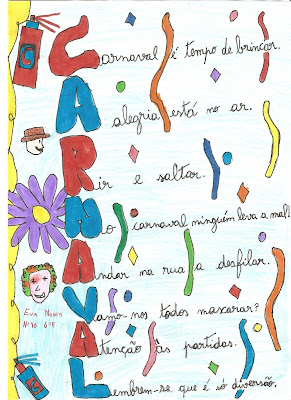 Carnaval é tempo de brincar.
A alegria está no ar.
Rir e saltar.
No carnaval ninguém leva a mal!
Andar na rua a desfilar.
Vamo-nos todos mascarar?
Atenção às partidas.
Lembrem-se que é só diversão.
Eva
Nº10 6ºF